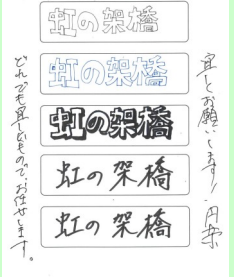 虹の架橋
虹の架橋
虹の架橋
虹の架橋
虹の架橋
宜しくお願いします!
どれでも宜しいもので、お任せします。